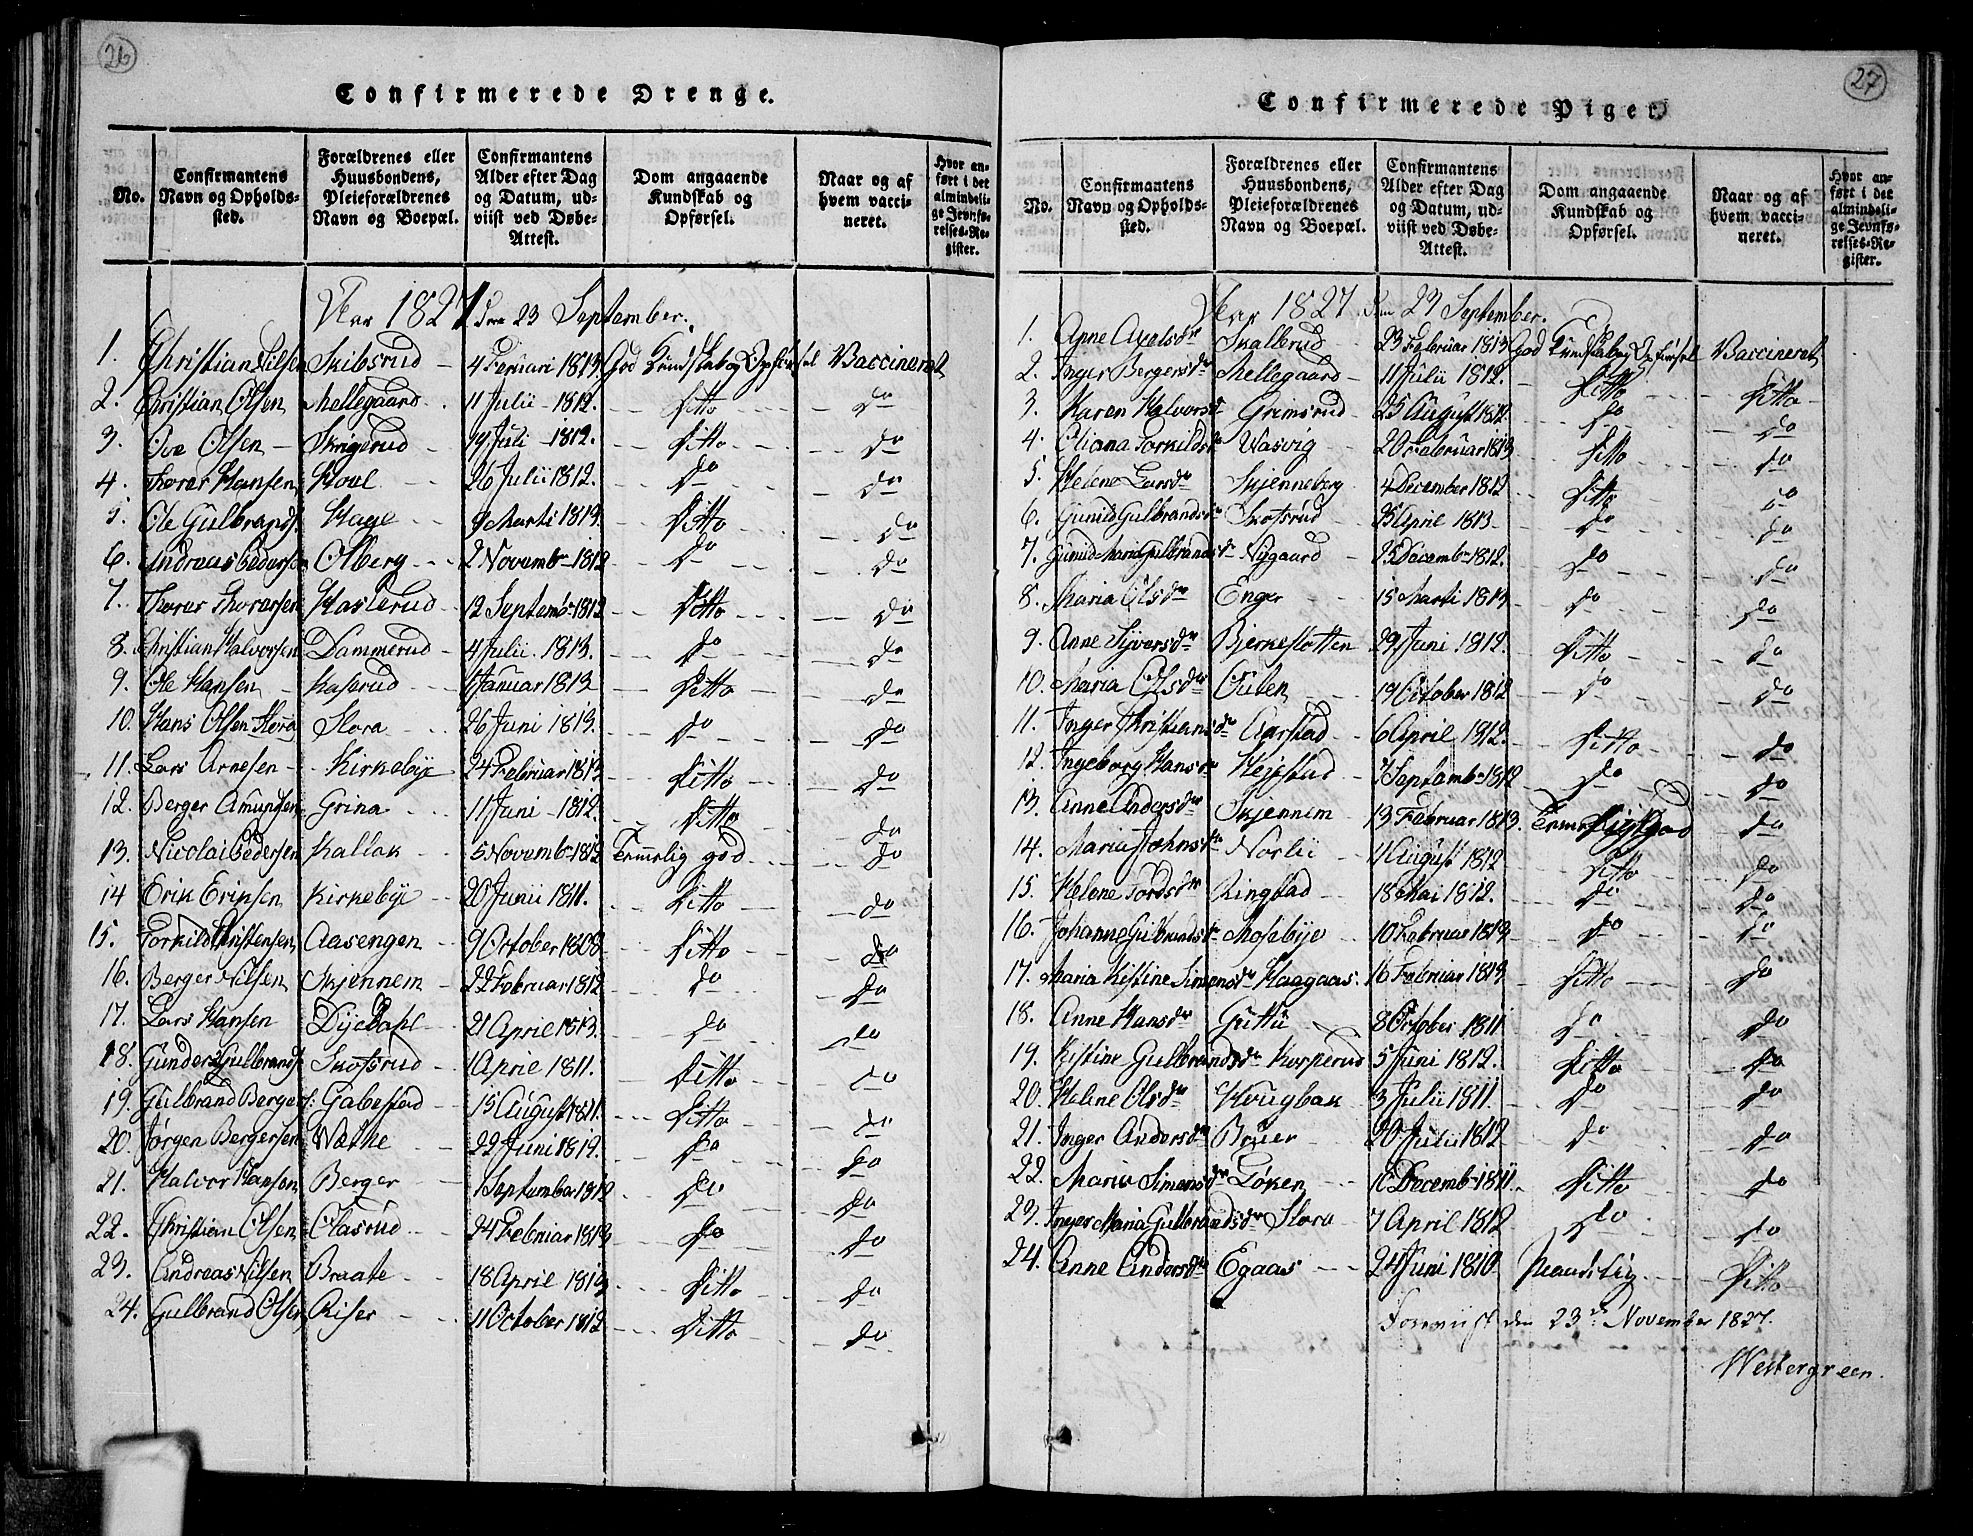 26
Confirmerede Drenge.
No. | Confirmantens Navn og Opholds-sted. | Forældrenes eller Huusbondens, Pleieforældrenes Navn og Boepæl. | Confirmantens Alder efter Dag og Datum, ud-viist ved Døbe-Attest. | Dom angaaende Kundskab og Opførsel. | Naar og af hvem vacci-neret. | Hvor an-ført i det almindeli-ge Jevnfø-relses-Re-gister.
1827 den 23 September.
1. Christian Nilsen Skibsrud 4 Feruari 1813 God Kundskab og Opførsel Vaccineret
2. Christian Olsen Mellegaard 11 Julii 1812. Ditto do
3. Ole Olsen Skrigerud 19 Juli 1812. Ditto do
4. Thorer Hansen Hoel 26 Julii 1812. do do
5. Ole Gulbrands. Hage 9 Marti 1813 Ditto do
6. Andreas Pedersen Olberg 2 Novemb 1812 do do
7. Thorer Thorersen Haslerud 12 Septemb 1812 Ditto do
8. Christian Halvorsen Dammerud 4 Julii 1813. do do
9. Ole Hansen Kaserud 1 Januar 1813 Ditto do
10. Hans Olsen Flora Flora 26 Juni 1813. do do
11. Lars Arnesen Kirkebye 24 Februar 1813 Ditto do
12. Berger Amundsen Grina 11 Juni 1812. Ditto do
13. Nicolai Pedersen Kallak 5 Novemb 1812 Temmelig god do
14 Erik Eriksen Kirkebye 20 Junii 1811. Ditto do
15. Torkild Christensen Aasengen 9 October 1808 Ditto do
16. Berger Nilsen Skjennem 22 Februar 1812 do do
17. Lars Hansen Dyedahl 21 April 1813. do do
18. Gunder Gulbrands. Skotsrud 1 April 1811. Ditto do
19. Gulbrand Bergers: Gabestad 15 August 1811. Ditto do
20. Jørgen Bergersen Næthe 22 Juni 1812. do do
21. Halvor Hansen Berger 1 September 1812 do do
22. Christian Olsen Olasrud 24 Februar 1813 do do
23. Andreas Nilsen Braate 18 April 1813 Ditto do
24. Gulbrand Olsen Riser 11 October 1812 Ditto do
27
Confirmerede Piger
No. | Confirmantens Navn og Opholds-sted. | Forældrenes eller Huusbondens, Pleieforældrenes Navn og Boepæl. | Confirmantens Alder efter Dag og Datum, ud-viist ved Døbe-Attest. | Dom angaaende Kundskab og Opførsel. | Naar og af hvem vacci-neret. | Hvor an-ført i det almindeli-ge Jevnfø-relses-Re-gister.
1827 den 23 September.
1. Anne Axelsdr Skallerud 23 Februar 1813 God Kundskab og Opførsel Vaccineret
2. Inger Bergersdr Mellegaard 11 Julii 1812. Ditto Ditto
3. Karen Halvorsd Grimsrud 25 August 1812 do do
4. Eliana Torkildsd Vasvig 20 Februar 1813 Ditto do
5. Helene Larsdr Skjenneberg 4 December 1812 Ditto do
6. Gunild Gulbrandsdr Skotsrud 25 April 1813 do do
7. Gunild Maria Gulbrandsdr Nygaard 25 Decemb 1812. do do
8. Maria Olsdr Enger 15 Marti 1813 do do
9. Anne Syversdr Bjerkeslotten 29 Juni 1812. Ditto do
10. Maria Olsdr Outen 19 October 1812 do do
11. Inger Christiansdr Aarstad 6 April 1812. Ditto do
12. Ingeborg Hansdr Hejestad 7 Septemb 1812 do do
13. Anne Andersdr Skjennem 13 Februar 1813. do
14. Maria Johnsdr Norlii 11 August 1812 Ditto do
15. Helene Tordsdr Ringstad 18 Mai 1812. do do
16. Johanne Gulbrandsdr Mosebye 10 Februar 1813 do do
17. Maria Kistine Simensdr Haagaas. 16 Februar 1813 Ditto do
18. Anne Hansdr Guttu 8 October 1811 do do
19. Kistine Gulbrandsdr Korperud 5 Juni 1812. Ditto do
20. Helene Olsdr Hougbak 3 Julii 1811 do do
21. Inger Andersdr Bruer 20 Julii 1812 do do
22. Maria Simensdr Løken 10 Decemb 1811. Ditto do
23. Inger Maria Gulbrandsdr Flora 7 April 1812 do do
24. Anne Andersdr Egaas 24 Juni 1810 Maadelig Ditto
Foreviist den 23de November 1827.
Westergreen.